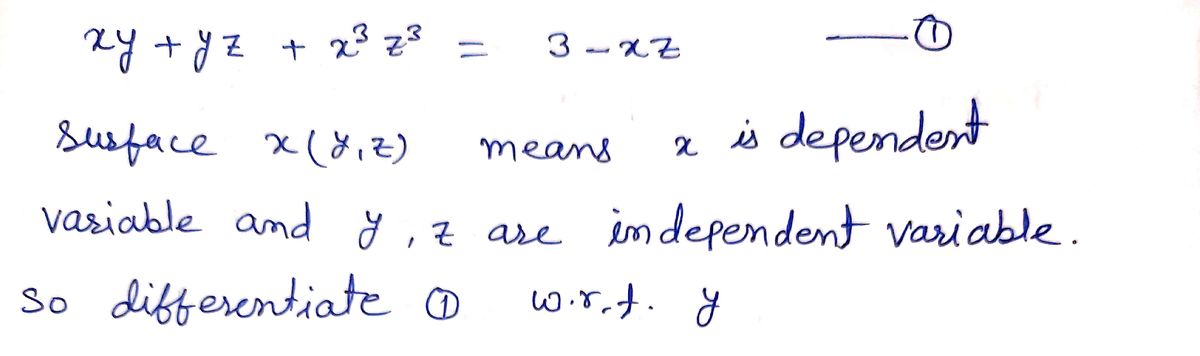 xy + yz + x³z³ = 3 - xz —①
surface x(y,z) means x is dependent
variable and y, z are independent variable.
so differentiate ① w.r.t. y